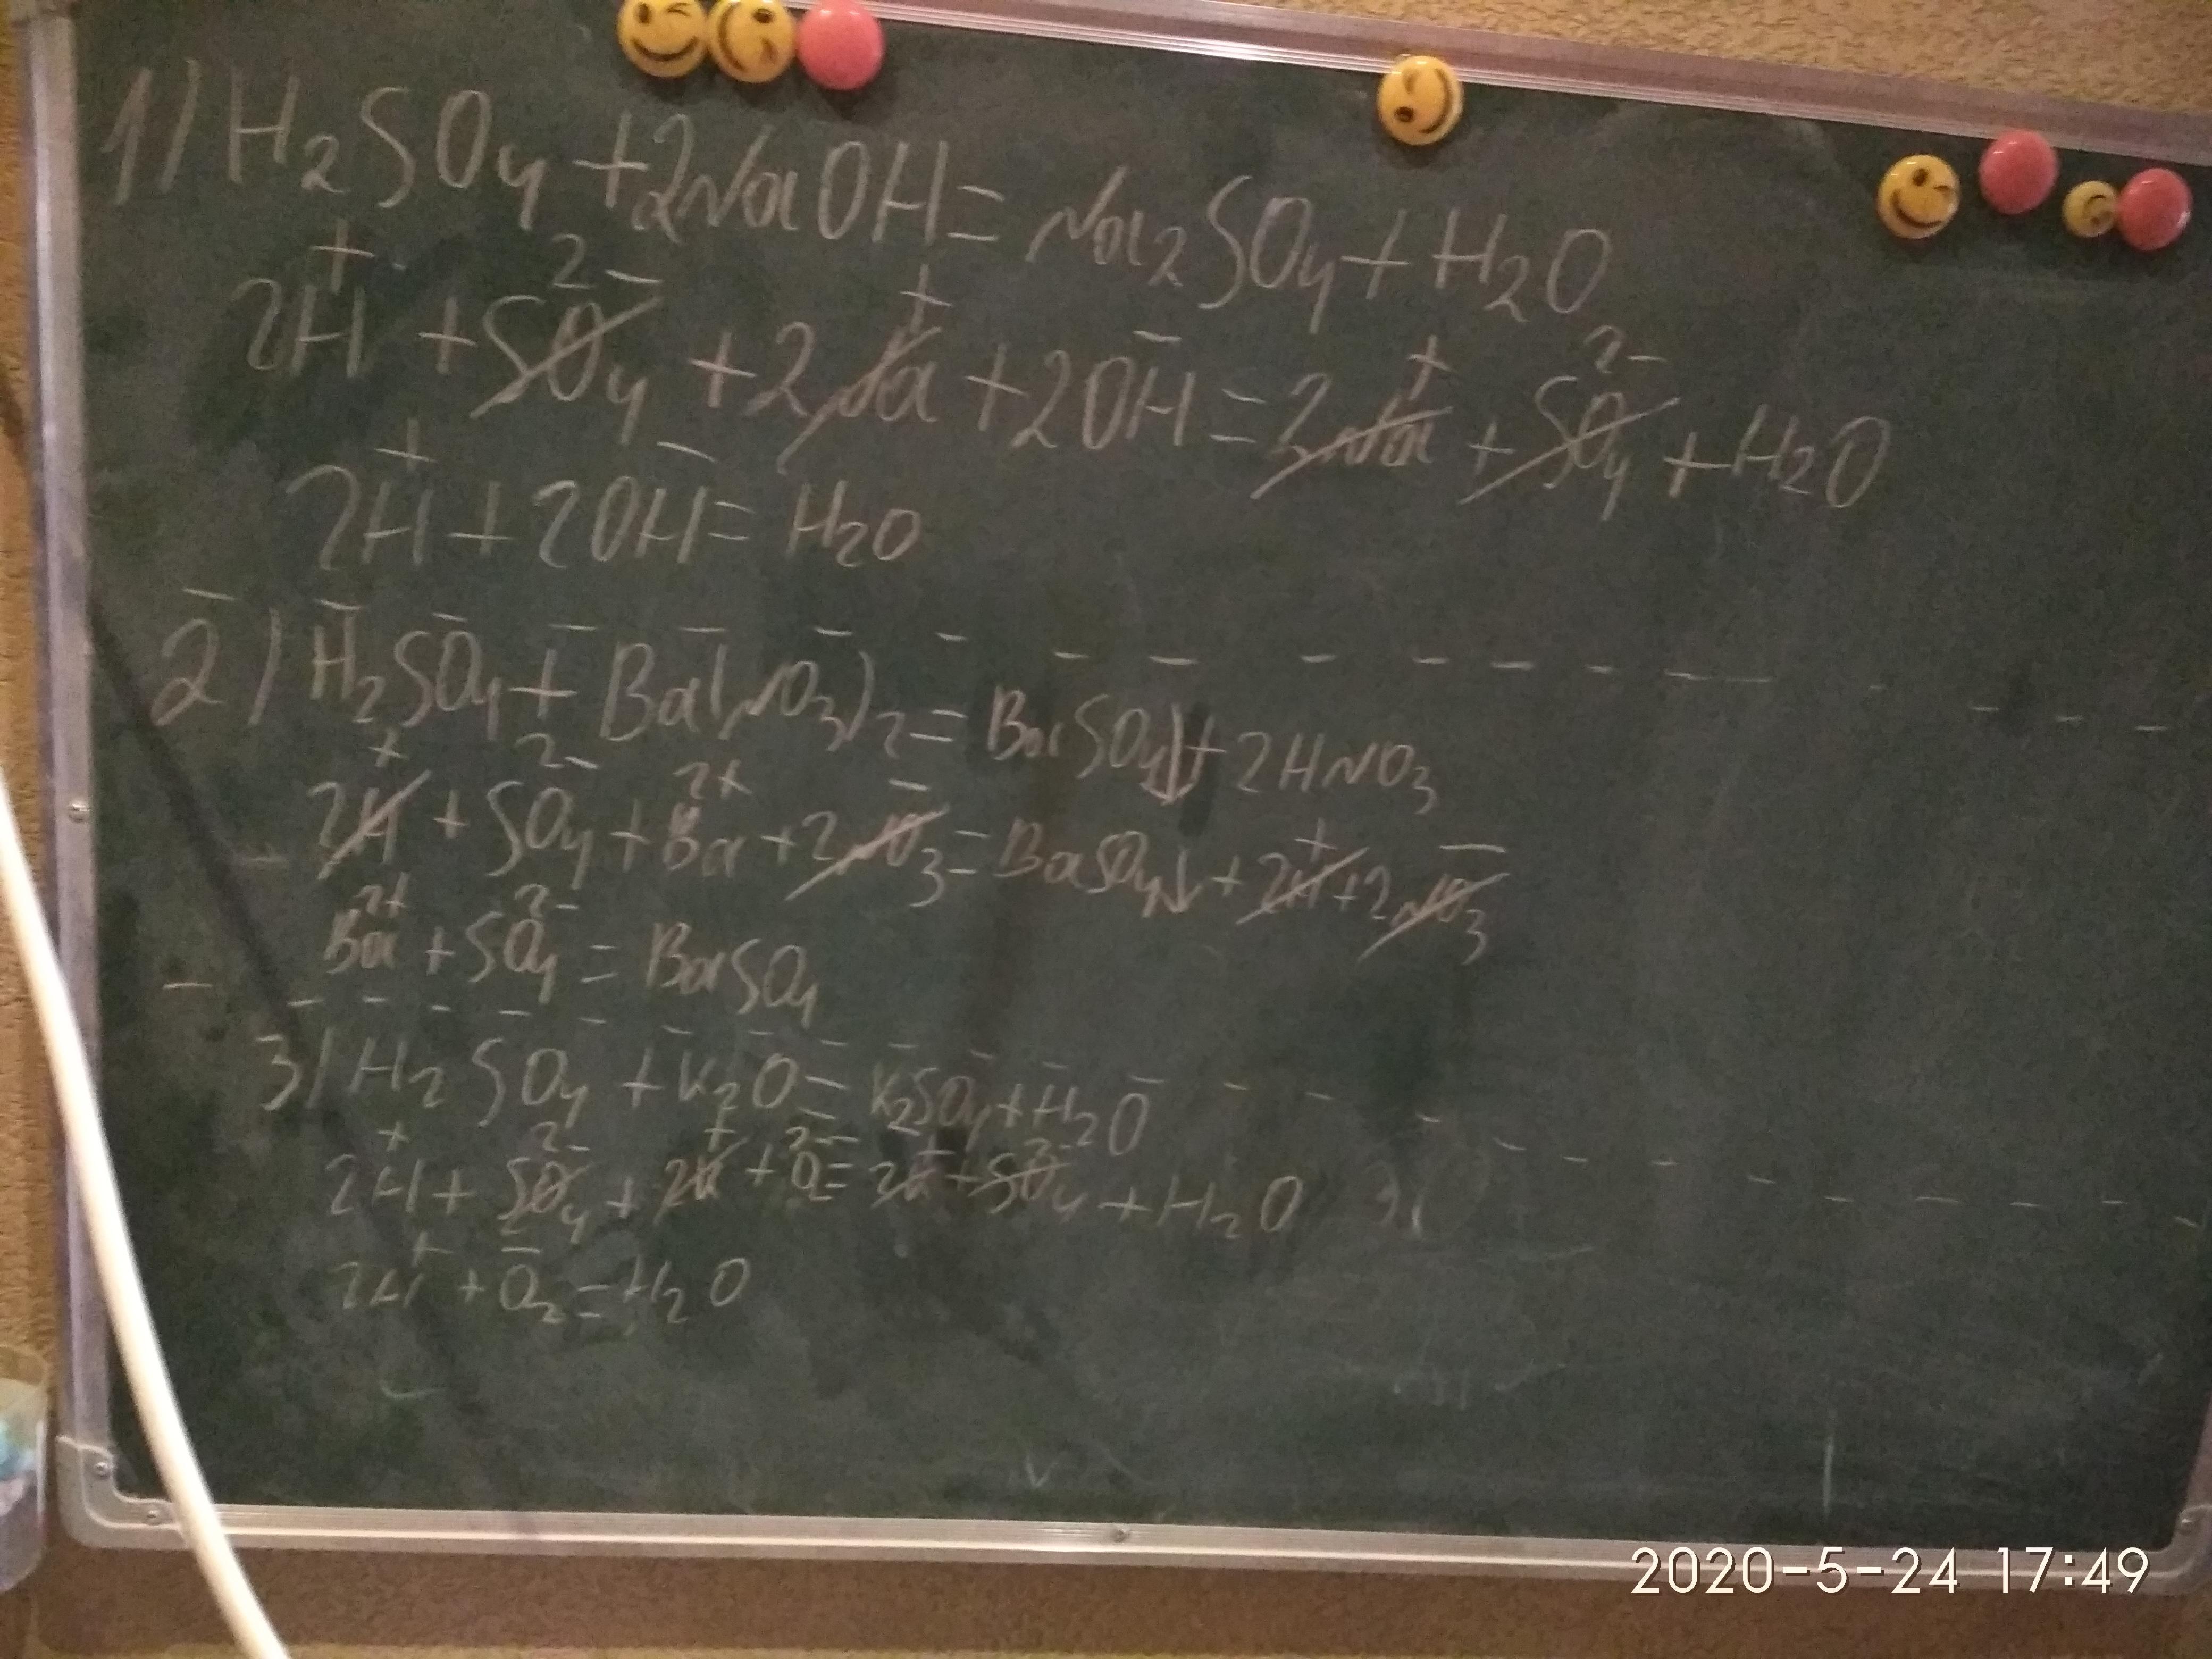 1) H₂SO₄ + 2NaOH = Na₂SO₄ + H₂O
2H⁺ + SO₄²⁻ + 2Na⁺ + 2OH⁻ = 2Na⁺ + SO₄²⁻ + H₂O
2H⁺ + 2OH⁻ = H₂O
2) H₂SO₄ + Ba(NO₃)₂ = BaSO₄↓ + 2HNO₃
2H⁺ + SO₄²⁻ + Ba²⁺ + 2NO₃⁻ = BaSO₄↓ + 2H⁺ + 2NO₃⁻
Ba²⁺ + SO₄²⁻ = BaSO₄
3) H₂SO₄ + K₂O = K₂SO₄ + H₂O
2H⁺ + SO₄²⁻ + 2K⁺ + O₂²⁻ = 2K⁺ + SO₄²⁻ + H₂O
2H⁺ + O₂⁻ = H₂O
2020-5-24 17:49